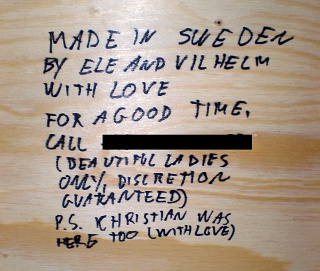 MADE IN SWEDEN
BY ELE AND VILHELM
WITH LOVE
FOR A GOOD TIME,
CALL
(BEAUTIFUL LADIES
ONLY, DISCRETION
GUARANTEED)
P.S. KHRISTIAN WAS
HERE TOO (WITH LOVE)